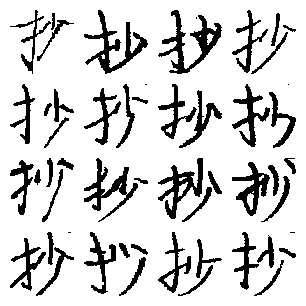 抄抄抄抄
抄抄抄抄
抄抄抄抄
抄抄抄抄